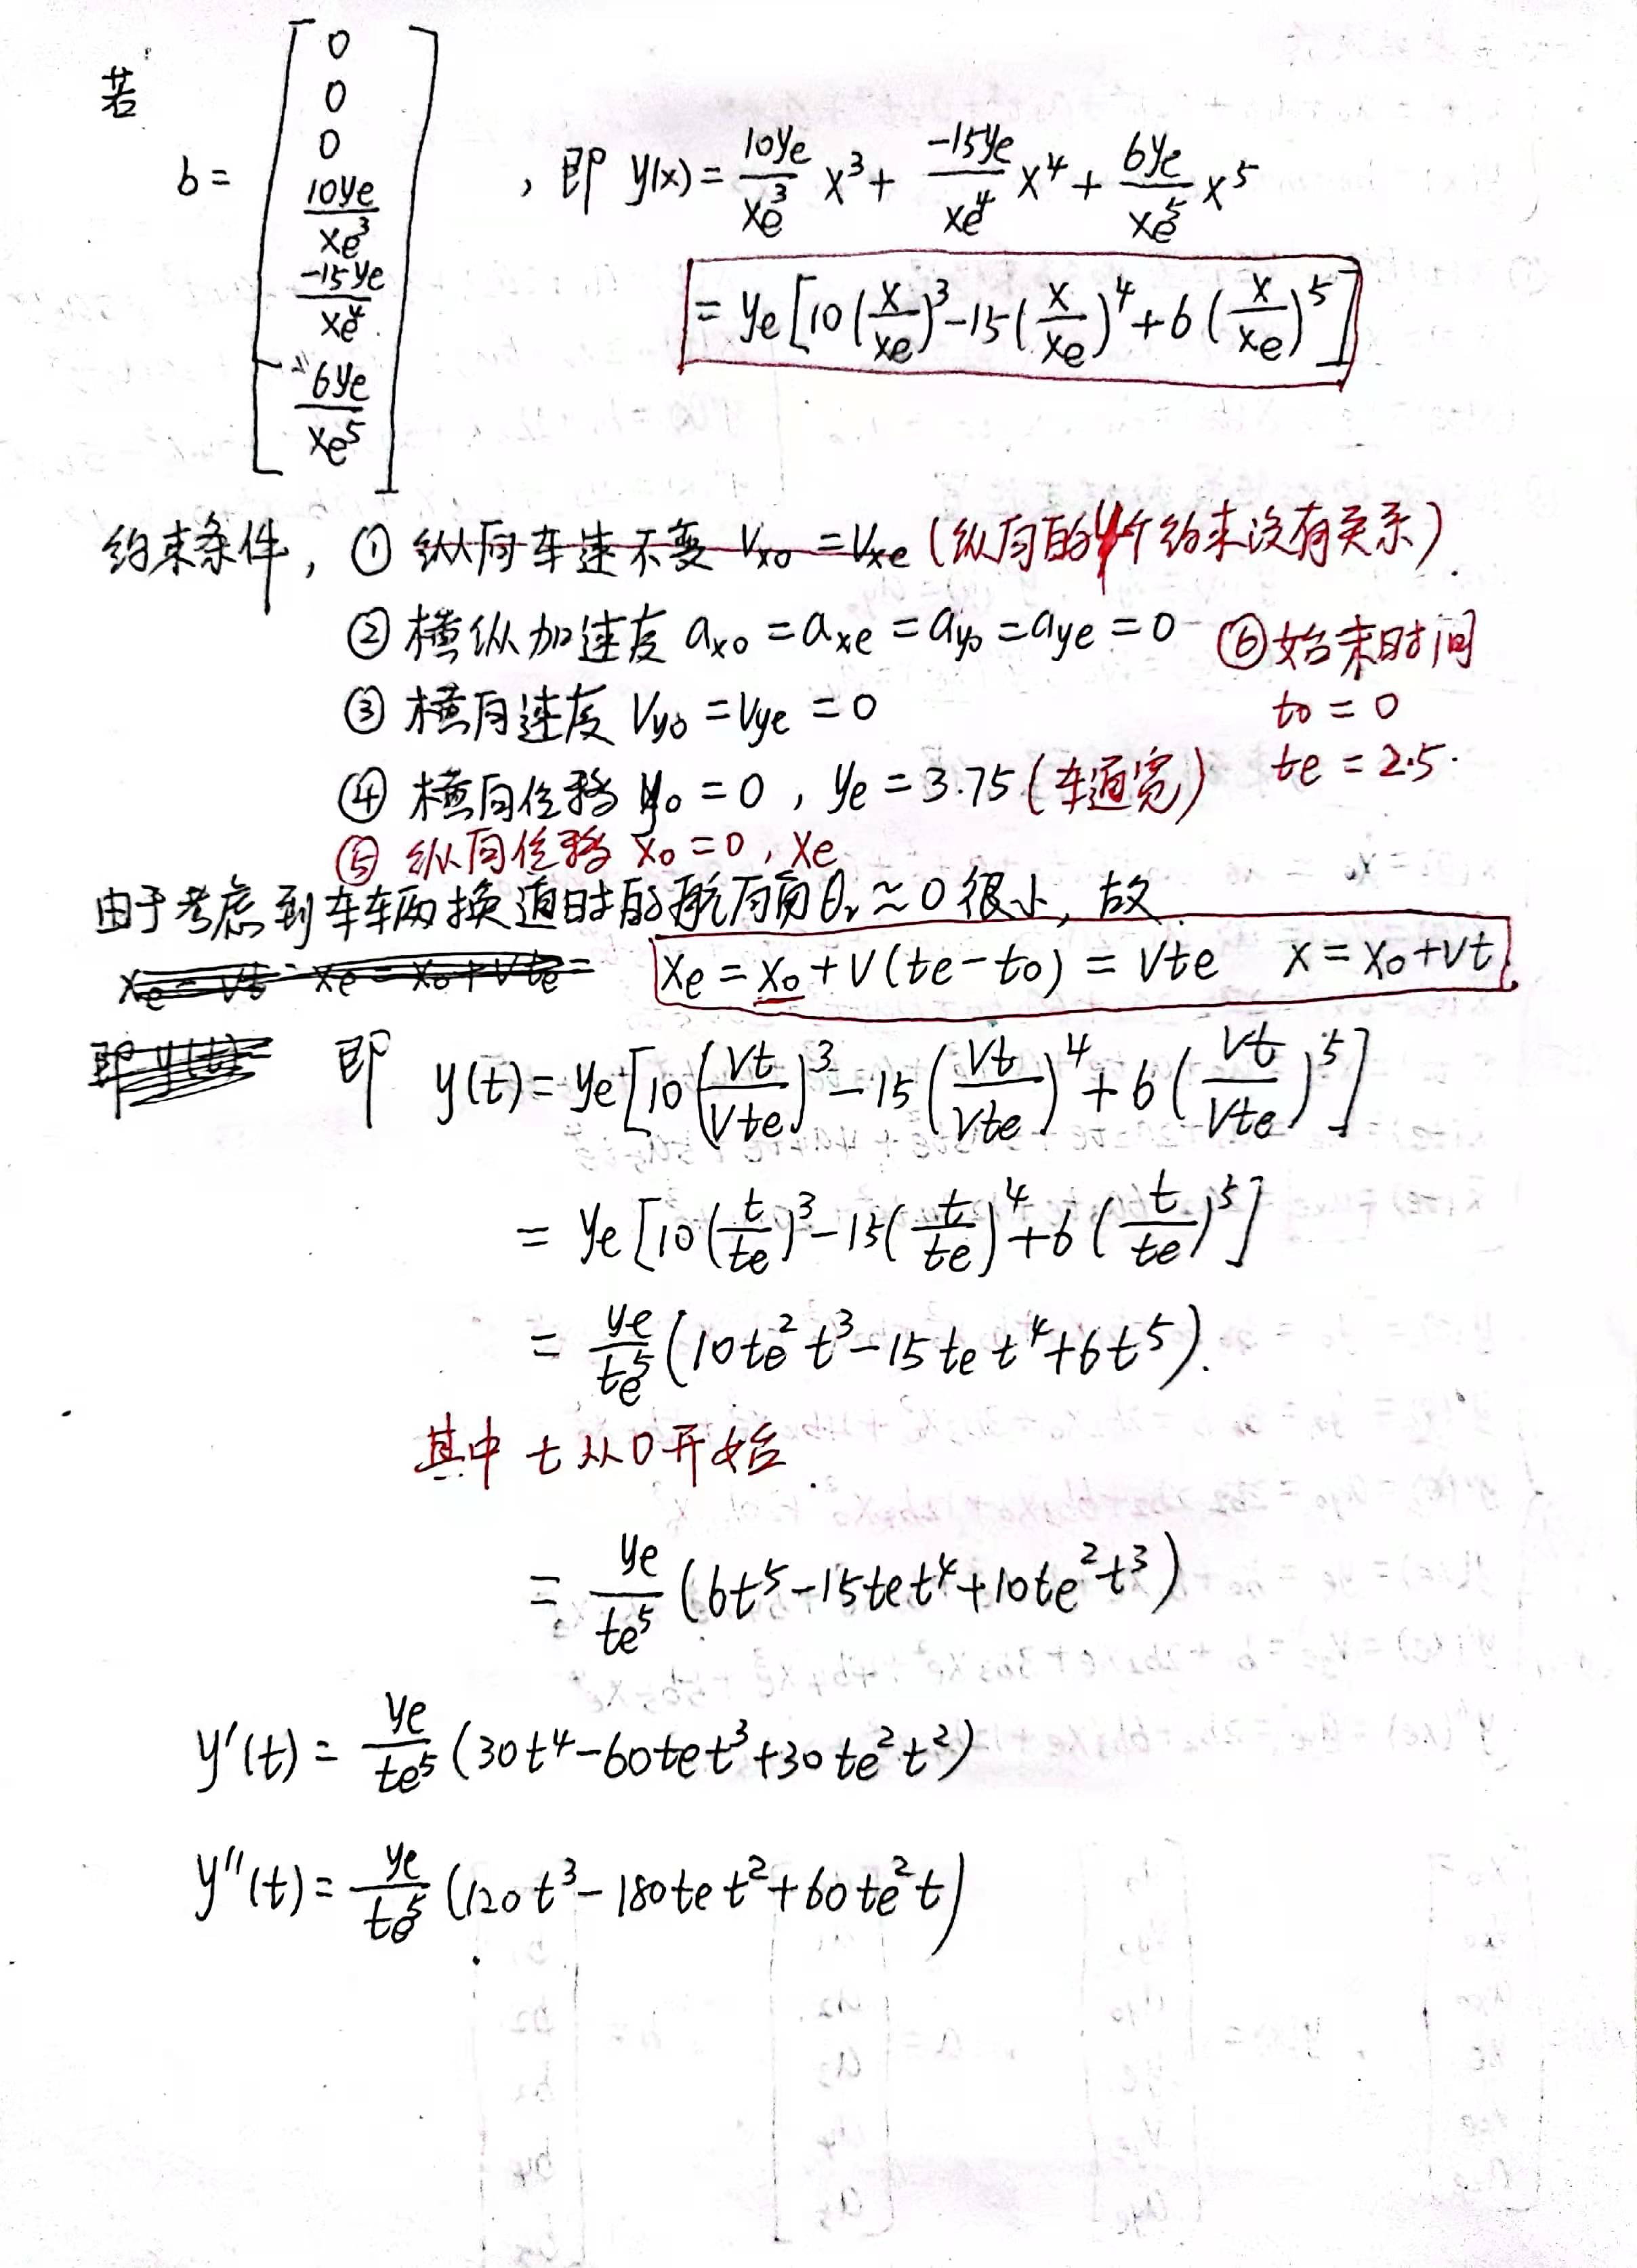 若
b = [ 0
0
0
10ye/xe^3
-15ye/xe^4
6ye/xe^5 ]
, 即 y(x) = 10ye/xe^3 x^3 + -15ye/xe^4 x^4 + 6ye/xe^5 x^5
= ye[10(x/xe)^3 - 15(x/xe)^4 + 6(x/xe)^5]
约束条件, ① 纵向车速不变 Vx0 = Vxe (纵向的4个约束没有关系).
② 横纵加速度 ax0 = axe = ay0 = aye = 0
⑥始末时间
③ 横向速度 Vy0 = Vye = 0
t0 = 0
④ 横向位移 y0 = 0 , ye = 3.75 (车道宽)
te = 2.5.
⑤ 纵向位移 x0 = 0 , xe
由于考虑到车车辆换道时的航向角θr ≈ 0 很小, 故
xe = x0 + V(te - t0) = Vte x = x0 + Vt
即 y(t) = ye[10(Vt/Vte)^3 - 15(Vt/Vte)^4 + 6(Vt/Vte)^5]
= ye[10(t/te)^3 - 15(t/te)^4 + 6(t/te)^5]
= ye/te^5 (10te^2 t^3 - 15te t^4 + 6t^5).
其中 t 从0开始.
= ye/te^5 (6t^5 - 15te t^4 + 10te^2 t^3)
y'(t) = ye/te^5 (30t^4 - 60te t^3 + 30te^2 t^2)
y''(t) = ye/te^5 (120t^3 - 180te t^2 + 60te^2 t)